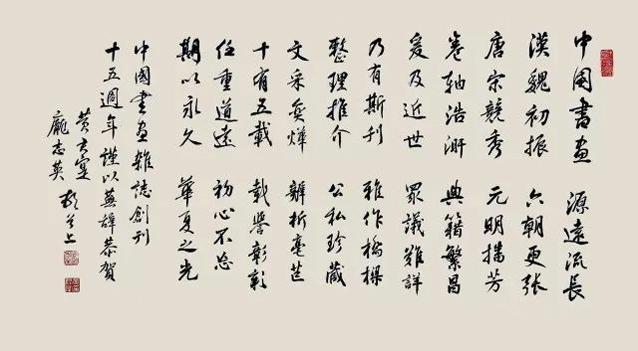 中國書畫 源遠流長
漢魏初振 六朝更張
唐宋競秀 元明播芳
卷軸浩 典籍繁昌
爰及近世 眾議難詳
乃有斯刊 雅作橋樑
整理推介 公私珍藏
文采奕燁 辨析毫芒
十有五載 載譽彰彰
任重道遠 初心不忘
期以永久 華夏之光
中國書畫雜誌創刊
十五週年謹以蕪辭恭賀
黃君寔
龐志英
上